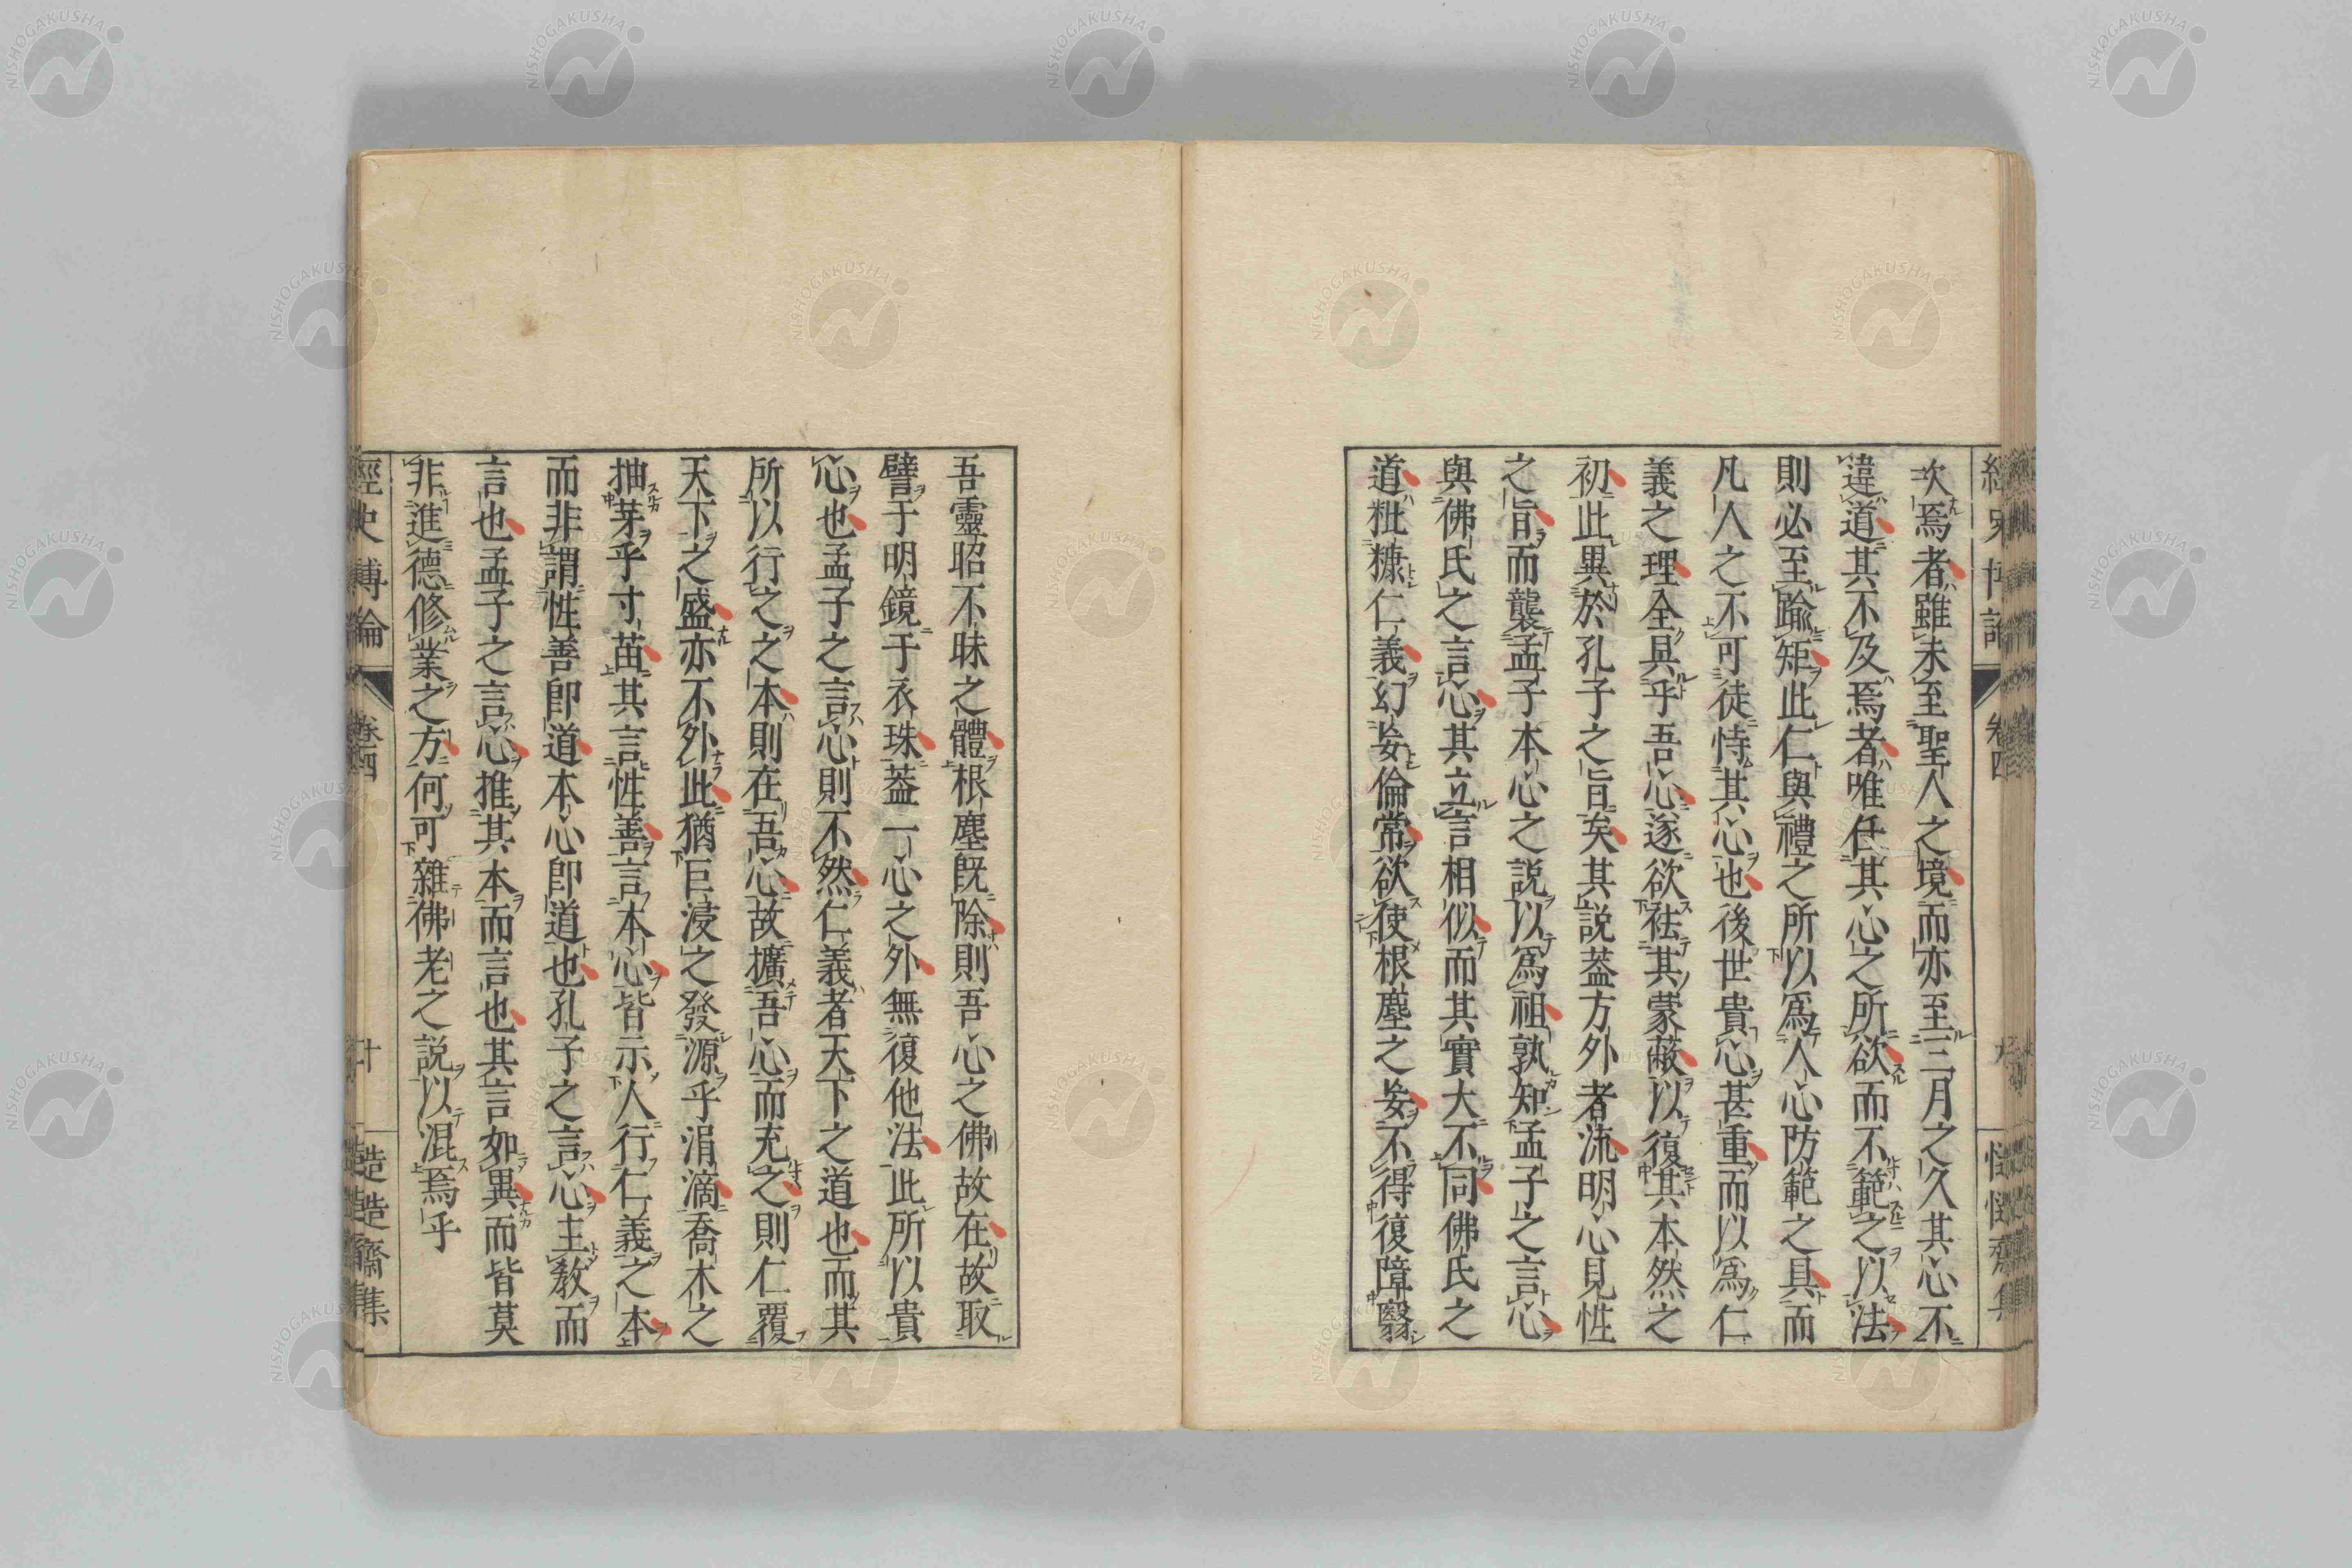 經史博論 卷四 九
次焉者雖未至聖人之境而亦至三月之久其心不
違道其不及焉者唯任其心之所欲而不範之以法
則必至踰矩此仁與禮之所以爲人心防範之具而
凡人之不可徒恃其心也後世貴心甚重而以爲仁
義之理全具乎吾心遂欲袪其蒙蔽以復其本然之
初此異於孔子之旨矣其説葢方外者流明心見性
之旨而襲孟子本心之説以爲祖孰知孟子之言心
與佛氏之言心其立言相似而其實大不同佛氏之
道粃糠仁義幻妄倫常欲使根塵之妄不得復障翳
吾靈昭不昧之體根塵既除則吾心之佛故在故取
譬于明鏡于衣珠葢一心之外無復他法此所以貴
心也孟子之言心則不然仁義者天下之道也而其
所以行之之本則在吾心故擴吾心而充之則仁覆
天下之盛亦不外此猶巨浸之發源乎涓滴喬木之
抽芽乎寸苗其言性善言本心皆示人行仁義之本
而非謂性善卽道本心卽道也孔子之言心主敎而
言也孟子之言心推其本而言也其言如異而皆莫
非進德修業之方何可雜佛老之説以混焉乎
經史博論 卷四 十 慥慥齋集
NISHOGAKUSHA